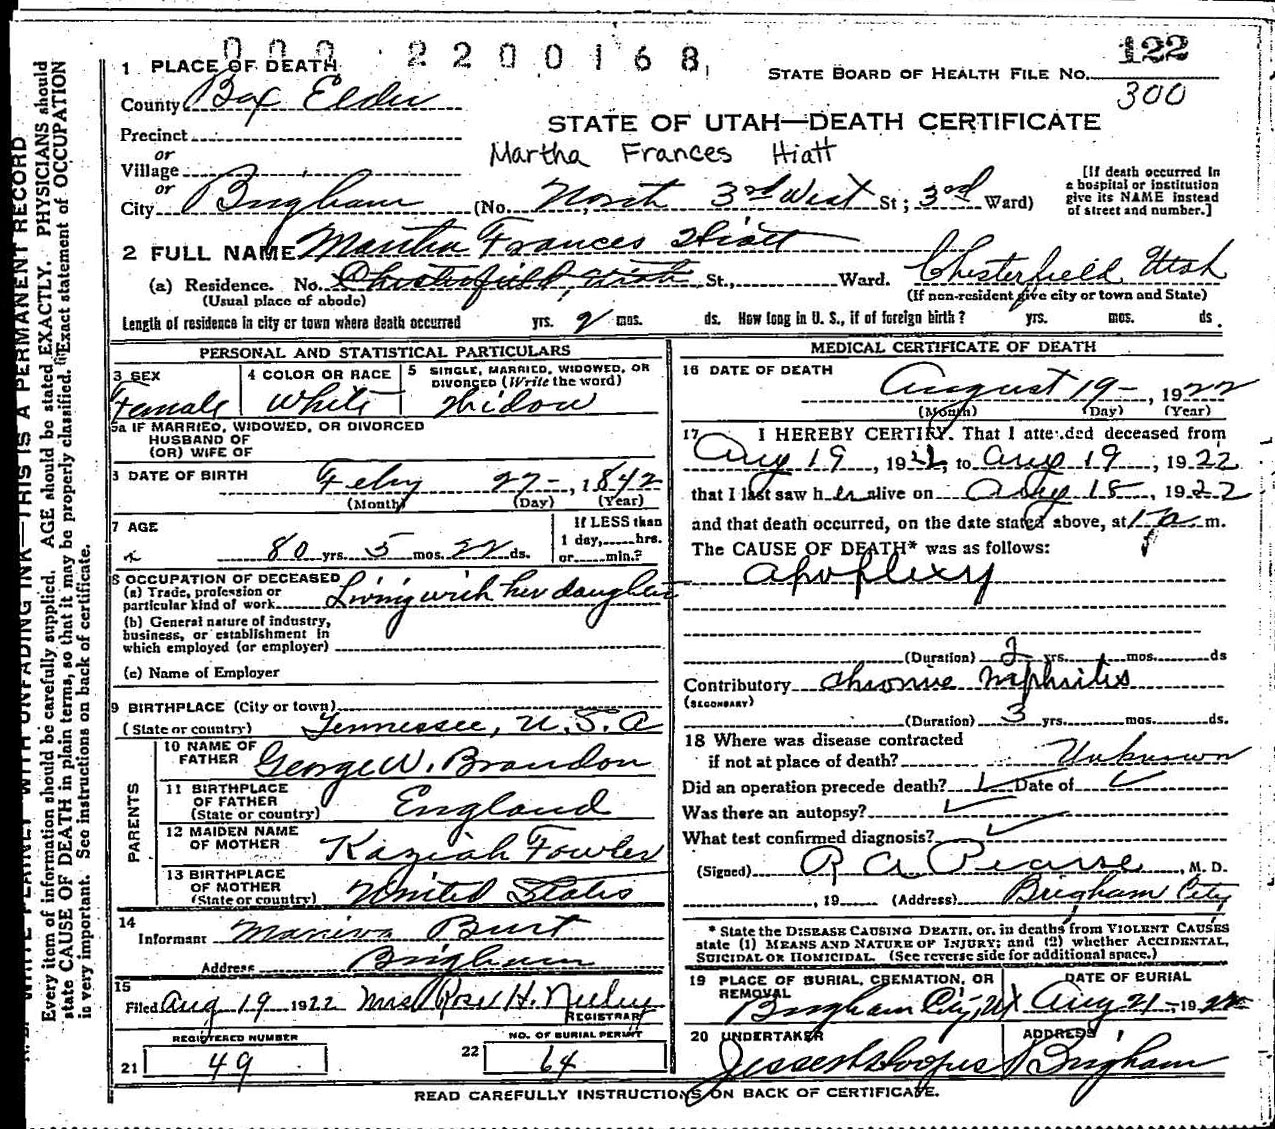 000 2200168
1 PLACE OF DEATH
STATE BOARD OF HEALTH FILE NO. 122
300
County Box Elder
STATE OF UTAH—DEATH CERTIFICATE
Precinct
or
Martha Frances Hiatt
Village
or
City Brigham (No. North 3rd West St; 3rd Ward)
[If death occurred in
a hospital or institution
give its NAME instead
of street and number.]
2 FULL NAME Martha Frances Hiatt
(a) Residence. No. Chesterfield, Utah St., Ward. Chesterfield, Utah
(Usual place of abode) (If non-resident give city or town and State)
Length of residence in city or town where death occurred yrs. 2 mos. ds. How long in U. S., if of foreign birth? yrs. mos. ds.
PERSONAL AND STATISTICAL PARTICULARS
3 SEX
Female
4 COLOR OR RACE
White
5 SINGLE, MARRIED, WIDOWED, OR
DIVORCED (Write the word)
Widow
5a IF MARRIED, WIDOWED, OR DIVORCED
HUSBAND OF
(OR) WIFE OF
6 DATE OF BIRTH Feby 27-, 1842
(Month) (Day) (Year)
7 AGE
80 yrs. 5 mos. 22 ds.
If LESS than
1 day, hrs.
or min.?
8 OCCUPATION OF DECEASED
(a) Trade, profession or
particular kind of work Living with her daughter
(b) General nature of industry,
business, or establishment in
which employed (or employer)
(c) Name of Employer
9 BIRTHPLACE (City or town)
(State or country) Tennessee, U.S.A
PARENTS
10 NAME OF
FATHER George W. Brandon
11 BIRTHPLACE
OF FATHER
(State or country) England
12 MAIDEN NAME
OF MOTHER Kaziah Fowler
13 BIRTHPLACE
OF MOTHER
(State or country) United States
14
Informant Burt
Address Brigham
15
Filed Aug 19 1922 Mrs Rose H.
REGISTRAR
REGISTERED NUMBER
21 49
NO. OF BURIAL PERMIT
22 64
MEDICAL CERTIFICATE OF DEATH
16 DATE OF DEATH
August 19-, 1922
(Month) (Day) (Year)
17 I HEREBY CERTIFY, That I attended deceased from
Aug 19, 1922, to Aug 19, 1922
that I last saw her alive on Aug 18, 1922
and that death occurred, on the date stated above, at 1 a m.
The CAUSE OF DEATH* was as follows:
Apoplexy
(Duration) 2 yrs. mos. ds
Contributory Chronic Nephritis
(SECONDARY)
(Duration) 3 yrs. mos. ds.
18 Where was disease contracted
if not at place of death? Unknown
Did an operation precede death? Date of
Was there an autopsy?
What test confirmed diagnosis?
(Signed) R A Pearse, M. D.
, 19 (Address) Brigham City
* State the DISEASE CAUSING DEATH, or, in deaths from VIOLENT CAUSES
state (1) MEANS AND NATURE OF INJURY; and (2) whether ACCIDENTAL,
SUICIDAL OR HOMICIDAL. (See reverse side for additional space.)
19 PLACE OF BURIAL, CREMATION, OR
REMOVAL
Brigham City, Ut
DATE OF BURIAL
Aug 21-1922
20 UNDERTAKER
ADDRESS
Brigham
READ CAREFULLY INSTRUCTIONS ON BACK OF CERTIFICATE.
WRITE PLAINLY WITH UNFADING INK—THIS IS A PERMANENT RECORD
Every item of information should be carefully supplied. AGE should be stated EXACTLY. PHYSICIANS should
state CAUSE OF DEATH in plain terms, so that it may be properly classified. Exact statement of OCCUPATION
is very important. See instructions on back of certificate.